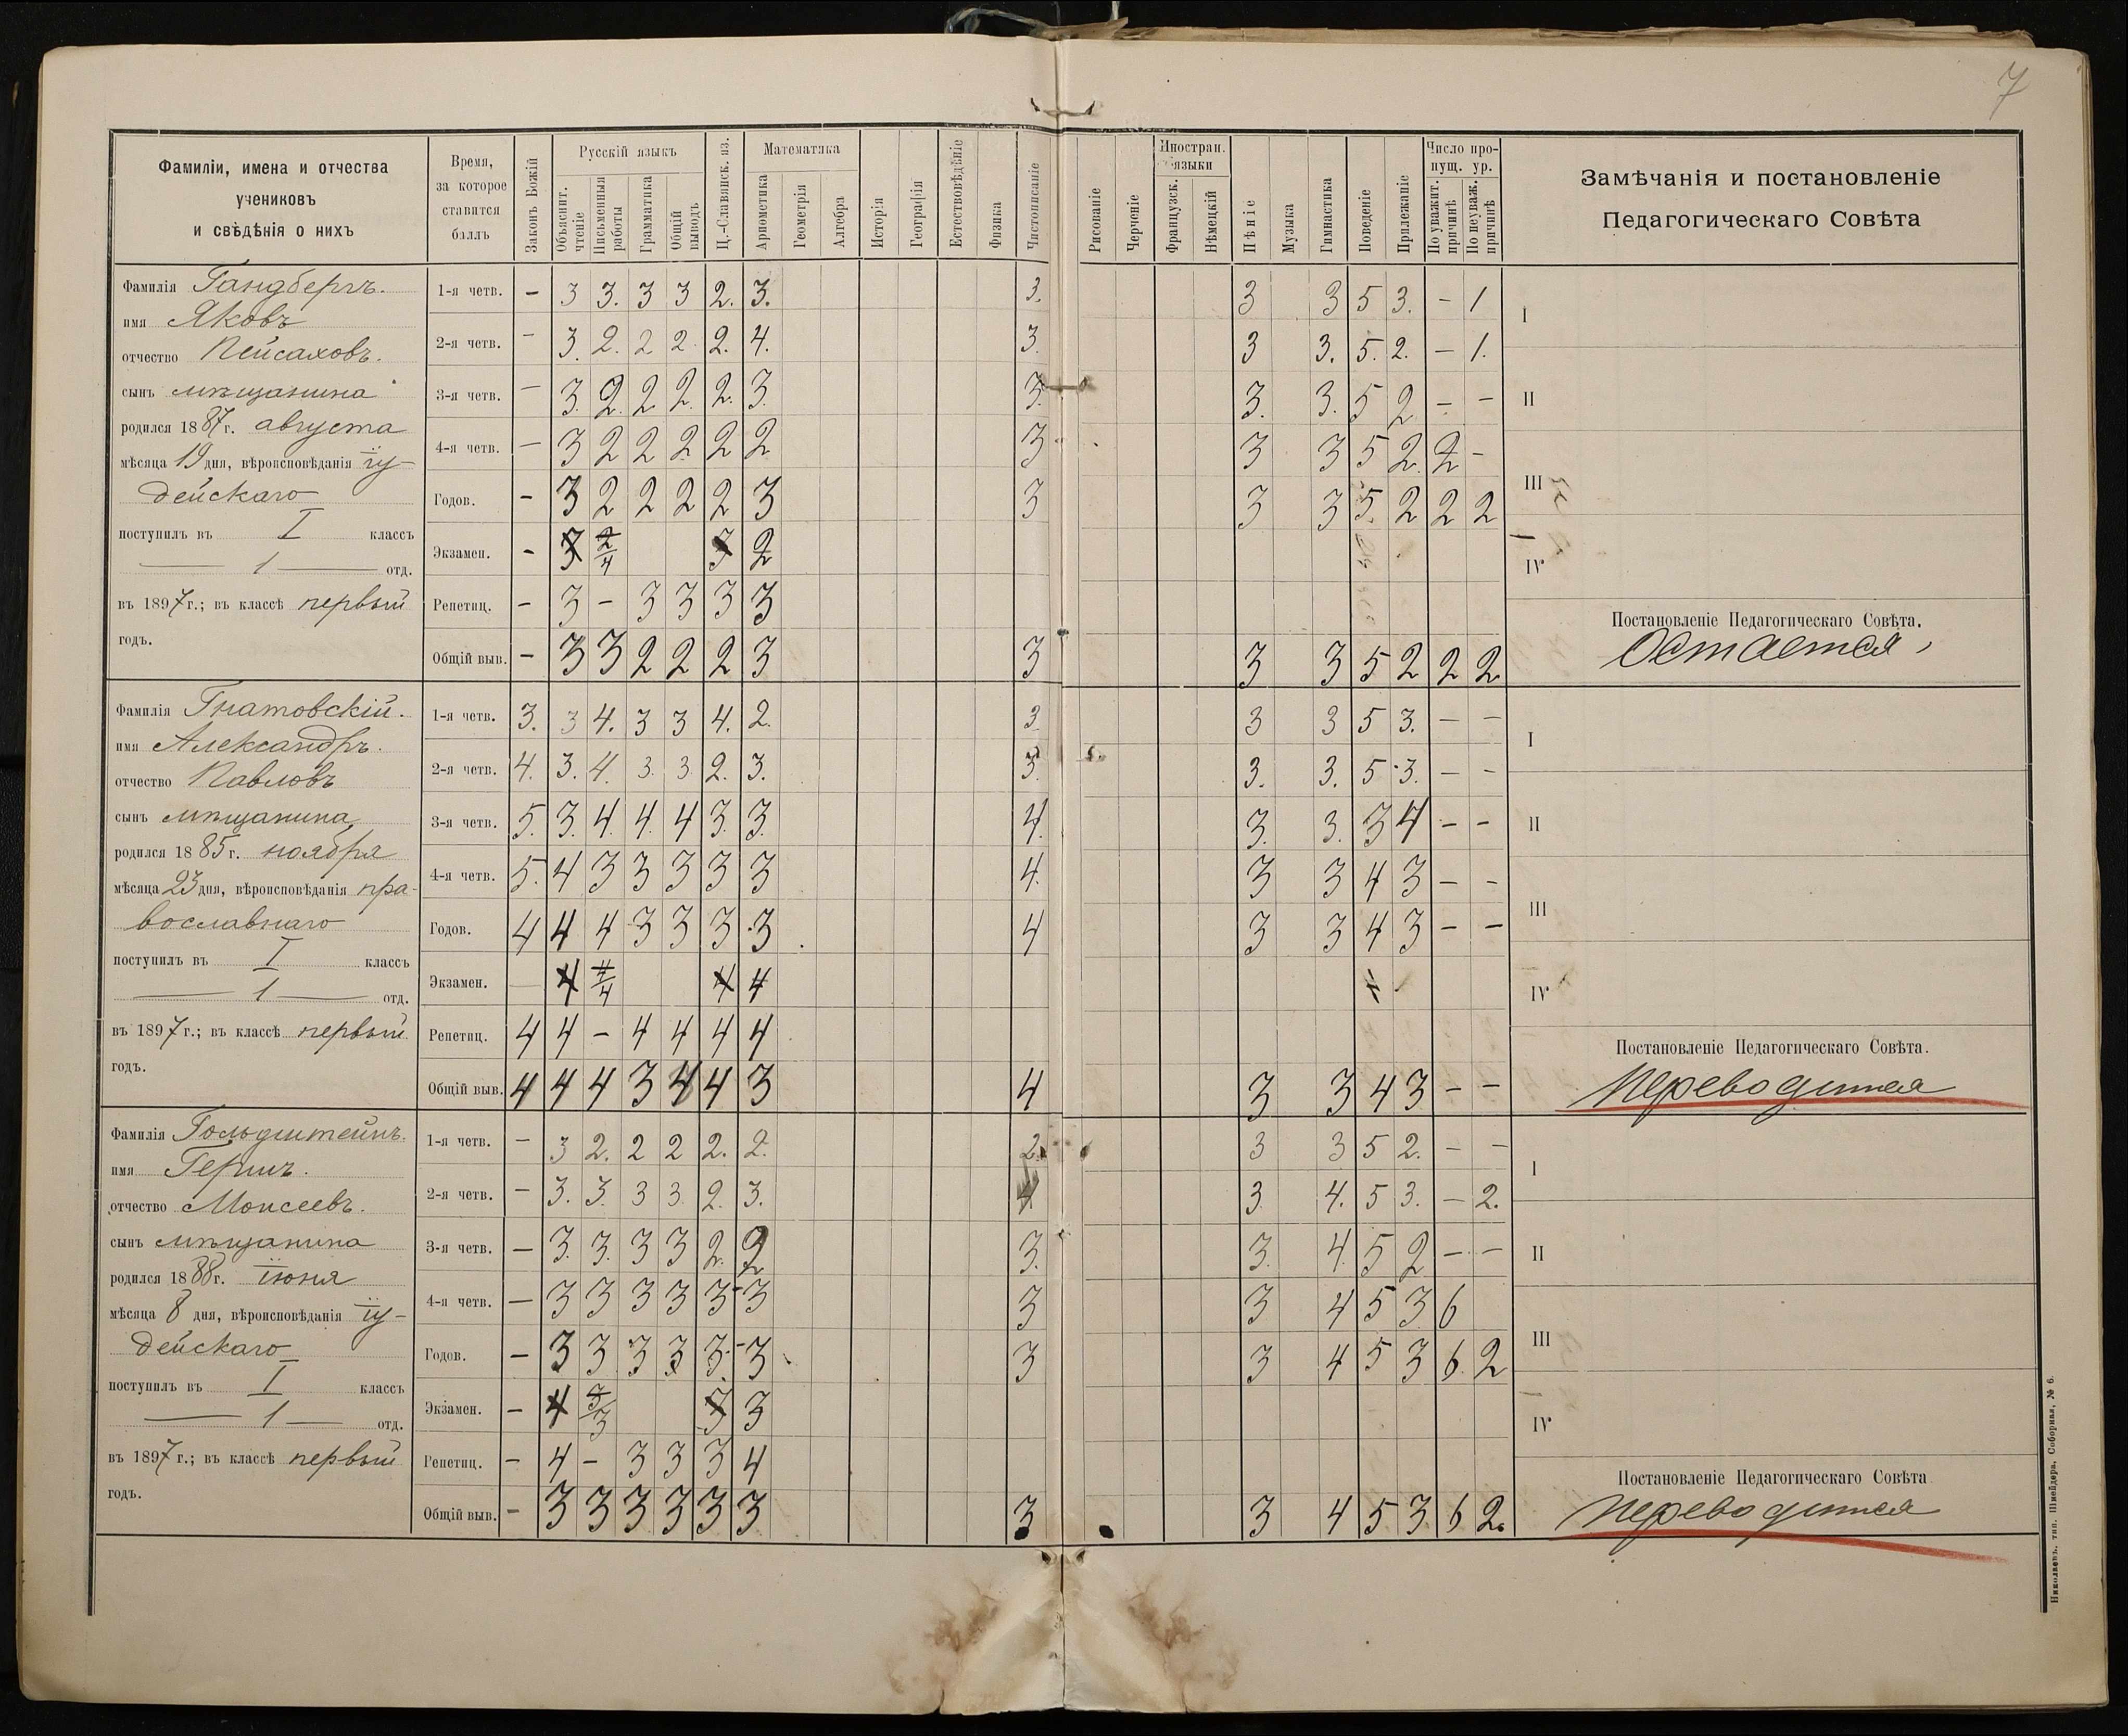 7
Фамиліи, имена и отчества
учениковъ
и свѣдѣнія о нихъ
Время,
за которое
ставится
баллъ
Законъ Божій
Русскій языкъ
Объяснит.
чтеніе
Письменныя
работы
Грамматика
Общій
выводъ
Ц.-Славянск. яз.
Математика
Ариѳметика
Геометрія
Алгебра
Исторія
Географія
Естествовѣдѣніе
Физика
Чистописаніе
Рисованіе
Черченіе
Иностран.
языки
Французск.
Нѣмецкій
Пѣніе
Музыка
Гимнастика
Поведеніе
Прилежаніе
Число про-
пущ. ур.
По уважит.
причинѣ
По неуваж.
причинѣ
Замѣчанія и постановленіе
Педагогическаго Совѣта
Фамилія Гандбергъ.
имя Яковъ
отчество Пейсаховъ.
сынъ мѣщанина
родился 1887 г. августа
мѣсяца 19 дня, вѣроисповѣданія іу-
дейскаго
поступилъ въ I классъ
— 1 — отд.
въ 1897 г.; въ классѣ первый
годъ.
1-я четв. – 3 3. 3 3 2. 3. 3. 3 3 5 3. – 1
2-я четв. – 3. 2. 2 2. 2. 4. 3. 3 3. 5. 2. – 1.
3-я четв. – 3. 2. 2. 2. 2. 3. 3. 3. 3. 5 2 – –
4-я четв. – 3 2 2 2 2 2 3 3 3 5 2. 2 –
Годов. – 3 2 2 2 2 3 3 3 3 5. 2 2 2
Экзамен. – 3 2/4 3 2
Репетиц. – 3 – 3 3 3 3
Общій выв. – 3 3 2 2 2 3 3 3 3 5 2 2 2
I
II
III
IV
Постановленіе Педагогическаго Совѣта.
Остается
Фамилія Гнатовскій.
имя Александръ.
отчество Павловъ
сынъ мѣщанина
родился 1885 г. ноября
мѣсяца 23 дня, вѣроисповѣданія пра-
вославнаго
поступилъ въ I классъ
— 1 — отд.
въ 1897 г.; въ классѣ первый
годъ.
1-я четв. 3. 3 4. 3 3 4. 2. 3. 3 3 5 3. – –
2-я четв. 4. 3. 4. 3. 3. 2. 3. 3. 3. 3. 5 3. – –
3-я четв. 5. 3. 4. 4. 4 3. 3. 4. 3. 3. 3 4 – –
4-я четв. 5. 4 3 3 3 3 3 4. 3 3 4 3 – –
Годов. 4 4 4 3 3 3 3 4 3 3 4 3 – –
Экзамен. — 4 4/4 4 4
Репетиц. 4 4 – 4 4 4 4
Общій выв. 4 4 4 3 4 4 3 4 3 3 4 3 – –
I
II
III
IV
Постановленіе Педагогическаго Совѣта.
Переводится
Фамилія Гольдштейнъ.
имя Гершъ.
отчество Моисеевъ.
сынъ мѣщанина
родился 1888 г. іюня
мѣсяца 8 дня, вѣроисповѣданія іу-
дейскаго
поступилъ въ I классъ
— 1 — отд.
въ 1897 г.; въ классѣ первый
годъ.
1-я четв. – 3 2. 2 2 2. 2. 2. 3 3 5 2. – –
2-я четв. – 3. 3. 3 3. 2. 3. 4 3. 4. 5 3. – 2.
3-я четв. – 3. 3. 3 3 2. 2 3. 3. 4. 5 2 – –
4-я четв. – 3 3 3 3 3 3 3 3 4 5 3 6
Годов. – 3 3 3 3 3. 3 3 3 4 5 3 6. 2
Экзамен. – 4 3/3 3 3
Репетиц. – 4 – 3 3 3 4
Общій выв. – 3 3 3 3 3 3 3 3 4 5 3 6 2.
I
II
III
IV
Постановленіе Педагогическаго Совѣта
Переводится
Николаевъ, тип. Шнейдера, Соборная, № 6.